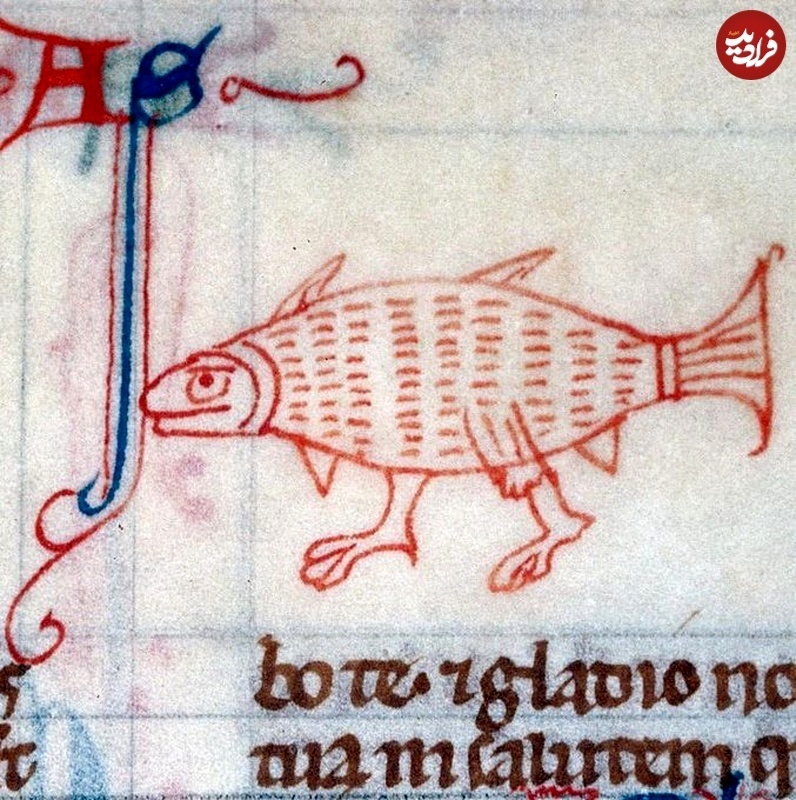 فرادید
AS
bo te· ⁊ gladio no
tua in ſalutem q